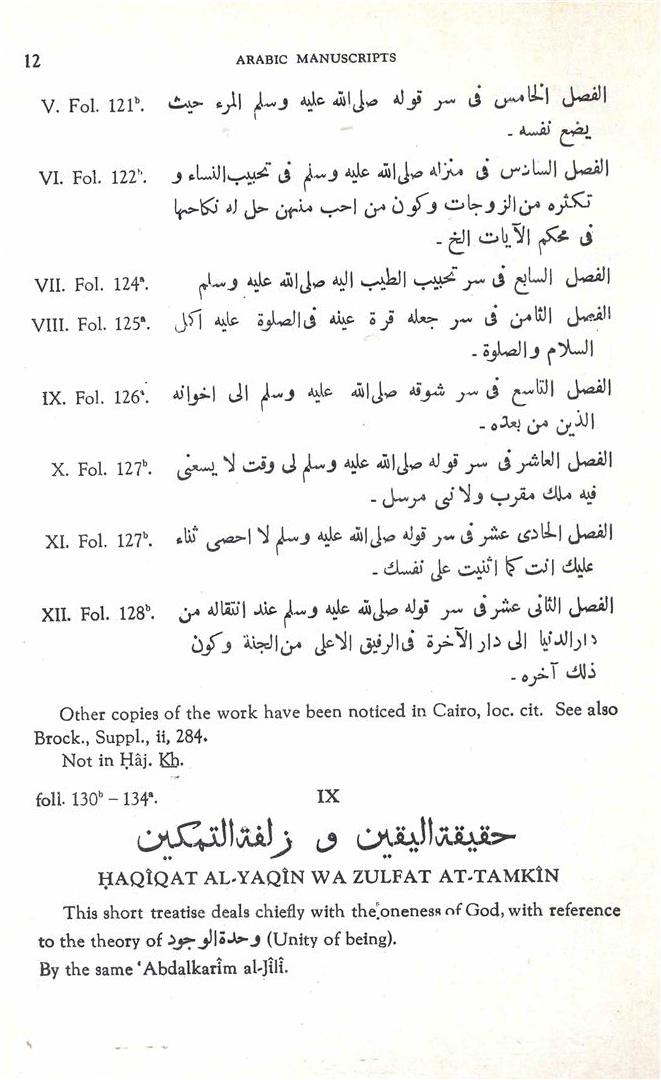 12 ARABIC MANUSCRIPTS
V. Fol. 121ᵇ. الفصل الخامس فى سر قوله صلى الله عليه وسلم المرء حيث
يضع نفسه ۔
VI. Fol. 122ᵇ. الفصل السادس فى منزله صلى الله عليه وسلم فى تحبيب النساء و
تكثره من الزوجات وكون من احب منهن حل له نكاحها
فى محكم الآيات الخ ۔
VII. Fol. 124ᵃ. الفصل السابع فى سر تحبيب الطيب اليه صلى الله عليه وسلم
VIII. Fol. 125ᵃ. الفصل الثامن فى سر جعله قرة عينه فى الصلوة عليه اكمل
السلام والصلوة ۔
IX. Fol. 126ᵃ. الفصل التاسع فى سر شوقه صلى الله عليه وسلم الى اخوانه
الذين من بعده ۔
X. Fol. 127ᵇ. الفصل العاشر فى سر قوله صلى الله عليه وسلم لى وقت لا يسعنى
فيه ملك مقرب ولا نبى مرسل ۔
XI. Fol. 127ᵇ. الفصل الحادى عشر فى سر قوله صلى الله عليه وسلم لا احصى ثناء
عليك انت كما اثنيت على نفسك ۔
XII. Fol. 128ᵇ. الفصل الثانى عشر فى سر قوله صلى الله عليه وسلم عند انتقاله من
دار الدنيا الى دار الآخرة فى الرفيق الاعلى من الجنة وكون
ذلك آخره ۔
Other copies of the work have been noticed in Cairo, loc. cit. See also
Brock., Suppl., ii, 284.
Not in Ḥâj. Kh.
foll. 130ᵇ – 134ᵃ. IX
حقيقة اليقين و زلفة التمكين
ḤAQÎQAT AL-YAQÎN WA ZULFAT AT-TAMKÎN
This short treatise deals chiefly with the oneness of God, with reference
to the theory of وحدة الوجود (Unity of being).
By the same ‘Abdalkarîm al-Jîlî.